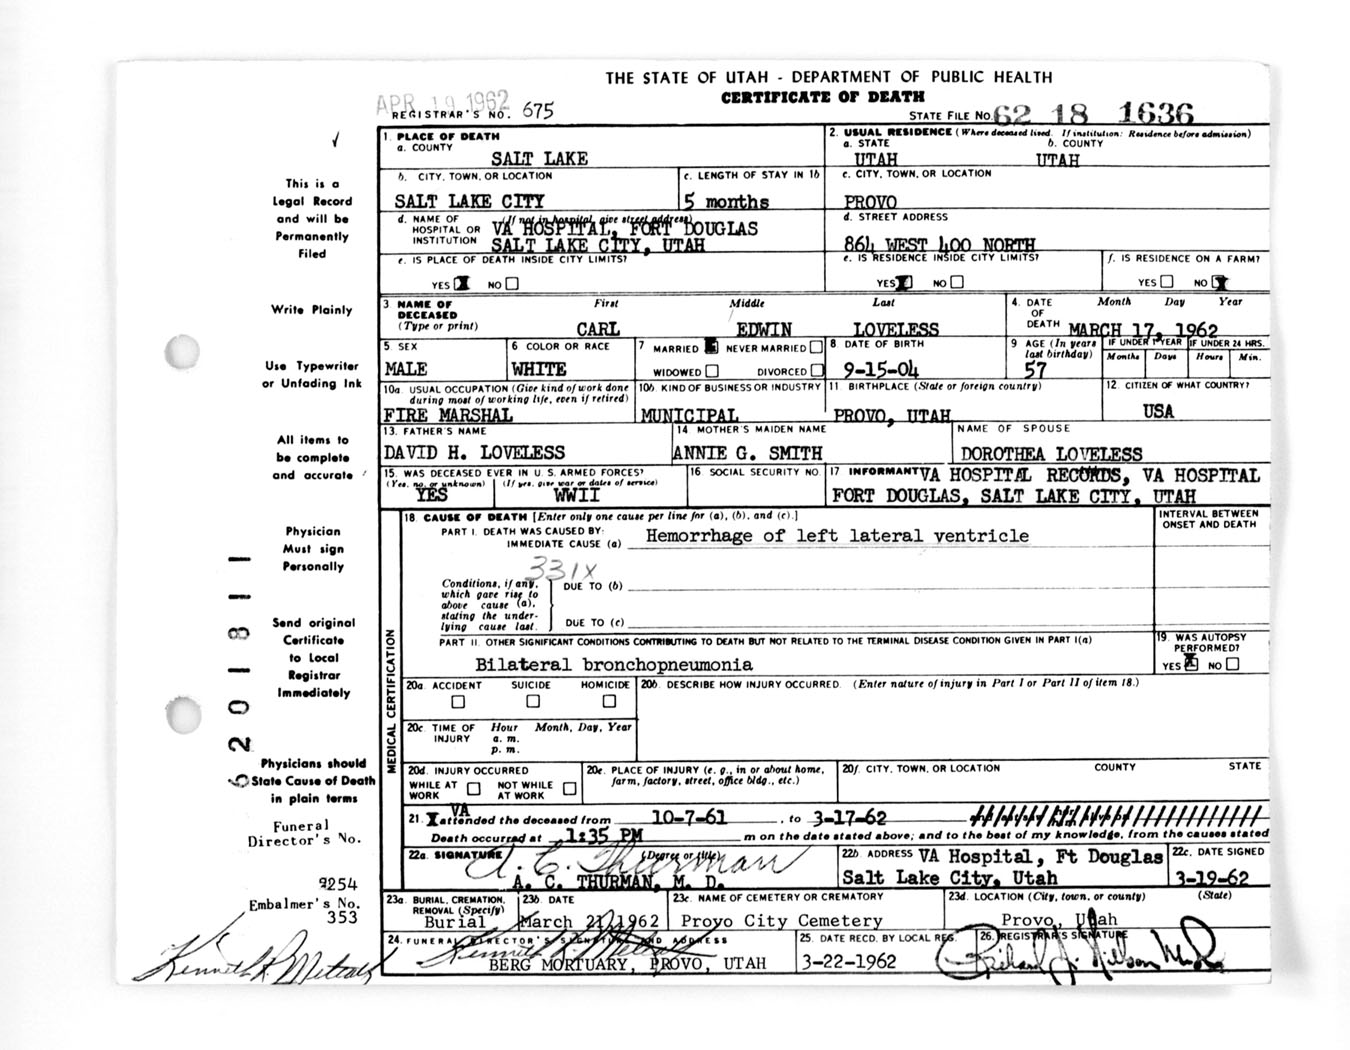 THE STATE OF UTAH - DEPARTMENT OF PUBLIC HEALTH
CERTIFICATE OF DEATH
APR 19 1962
REGISTRAR'S NO. 675
STATE FILE NO. 62 18 1636
1. PLACE OF DEATH
a. COUNTY
SALT LAKE
2. USUAL RESIDENCE (Where deceased lived. If institution: Residence before admission)
a. STATE b. COUNTY
UTAH UTAH
b. CITY, TOWN, OR LOCATION c. LENGTH OF STAY IN 1b
SALT LAKE CITY 5 months
c. CITY, TOWN, OR LOCATION
PROVO
d. NAME OF HOSPITAL OR INSTITUTION (If not in hospital, give street address)
VA HOSPITAL, FORT DOUGLAS
SALT LAKE CITY, UTAH
d. STREET ADDRESS
864 WEST 400 NORTH
e. IS PLACE OF DEATH INSIDE CITY LIMITS?
YES X NO
e. IS RESIDENCE INSIDE CITY LIMITS?
YES X NO
f. IS RESIDENCE ON A FARM?
YES NO X
3. NAME OF DECEASED (Type or print)
First Middle Last
CARL EDWIN LOVELESS
4. DATE OF DEATH Month Day Year
MARCH 17, 1962
5. SEX
MALE
6 COLOR OR RACE
WHITE
7 MARRIED NEVER MARRIED
WIDOWED DIVORCED
8 DATE OF BIRTH
9-15-04
9 AGE (In years last birthday)
57
IF UNDER 1 YEAR IF UNDER 24 HRS.
Months Days Hours Min.
10a. USUAL OCCUPATION (Give kind of work done during most of working life, even if retired)
FIRE MARSHAL
10b. KIND OF BUSINESS OR INDUSTRY
MUNICIPAL
11. BIRTHPLACE (State or foreign country)
PROVO, UTAH
12. CITIZEN OF WHAT COUNTRY?
USA
13. FATHER'S NAME
DAVID H. LOVELESS
14 MOTHER'S MAIDEN NAME
ANNIE G. SMITH
NAME OF SPOUSE
DOROTHEA LOVELESS
15. WAS DECEASED EVER IN U. S. ARMED FORCES?
(Yes, no, or unknown) (If yes, give war or dates of service)
YES WWII
16 SOCIAL SECURITY NO.
17 INFORMANT VA HOSPITAL RECORDS, VA HOSPITAL
FORT DOUGLAS, SALT LAKE CITY, UTAH
MEDICAL CERTIFICATION
18. CAUSE OF DEATH [Enter only one cause per line for (a), (b), and (c).]
INTERVAL BETWEEN ONSET AND DEATH
PART I. DEATH WAS CAUSED BY:
IMMEDIATE CAUSE (a) Hemorrhage of left lateral ventricle
331X
Conditions, if any, which gave rise to above cause (a), stating the underlying cause last.
DUE TO (b)
DUE TO (c)
PART II. OTHER SIGNIFICANT CONDITIONS CONTRIBUTING TO DEATH BUT NOT RELATED TO THE TERMINAL DISEASE CONDITION GIVEN IN PART I(a)
Bilateral bronchopneumonia
19. WAS AUTOPSY PERFORMED?
YES X NO
20a. ACCIDENT SUICIDE HOMICIDE
20b. DESCRIBE HOW INJURY OCCURRED. (Enter nature of injury in Part I or Part II of item 18.)
20c. TIME OF INJURY Hour Month, Day, Year
a. m.
p. m.
20d. INJURY OCCURRED
WHILE AT WORK NOT WHILE AT WORK
20e. PLACE OF INJURY (e. g., in or about home, farm, factory, street, office bldg., etc.)
20f. CITY, TOWN, OR LOCATION COUNTY STATE
VA
21. attended the deceased from 10-7-61, to 3-17-62
Death occurred at 1:35 PM m on the date stated above; and to the best of my knowledge, from the causes stated
22a. SIGNATURE (Degree or title)
A. C. Thurman
A. C. THURMAN, M. D.
22b. ADDRESS VA Hospital, Ft Douglas
Salt Lake City, Utah
22c. DATE SIGNED
3-19-62
23a. BURIAL, CREMATION, REMOVAL (Specify)
Burial
23b. DATE
March 21, 1962
23c. NAME OF CEMETERY OR CREMATORY
Provo City Cemetery
23d. LOCATION (City, town, or county) (State)
Provo, Utah
24. FUNERAL DIRECTOR'S SIGNATURE AND ADDRESS
BERG MORTUARY, PROVO, UTAH
25. DATE RECD. BY LOCAL REG.
3-22-1962
26. REGISTRAR'S SIGNATURE
This is a
Legal Record
and will be
Permanently
Filed
Write Plainly
Use Typewriter
or Unfading Ink
All items to
be complete
and accurate
Physician
Must sign
Personally
Send original
Certificate
to Local
Registrar
Immediately
Physicians should
State Cause of Death
in plain terms
Funeral
Director's No.
9254
Embalmer's No.
353